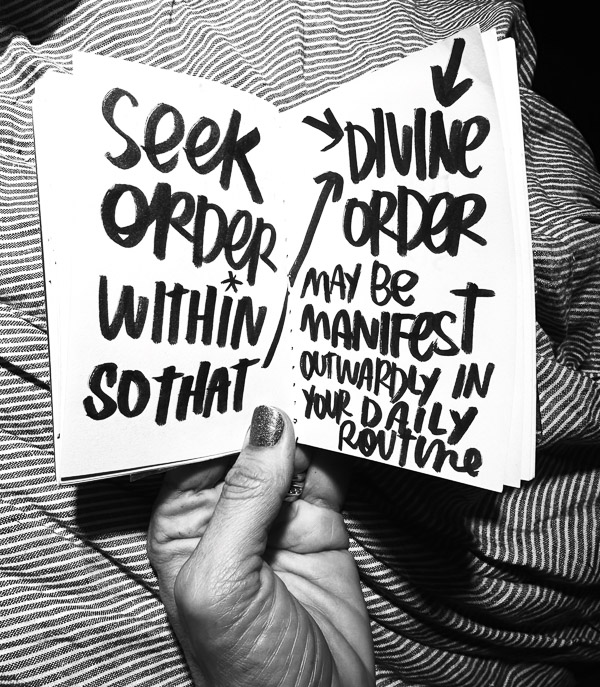 SEEK
ORDER
WITHIN
SO THAT
DIVINE
ORDER
MAY BE
MANIFEST
OUTWARDLY IN
YOUR DAILY
ROUTINE